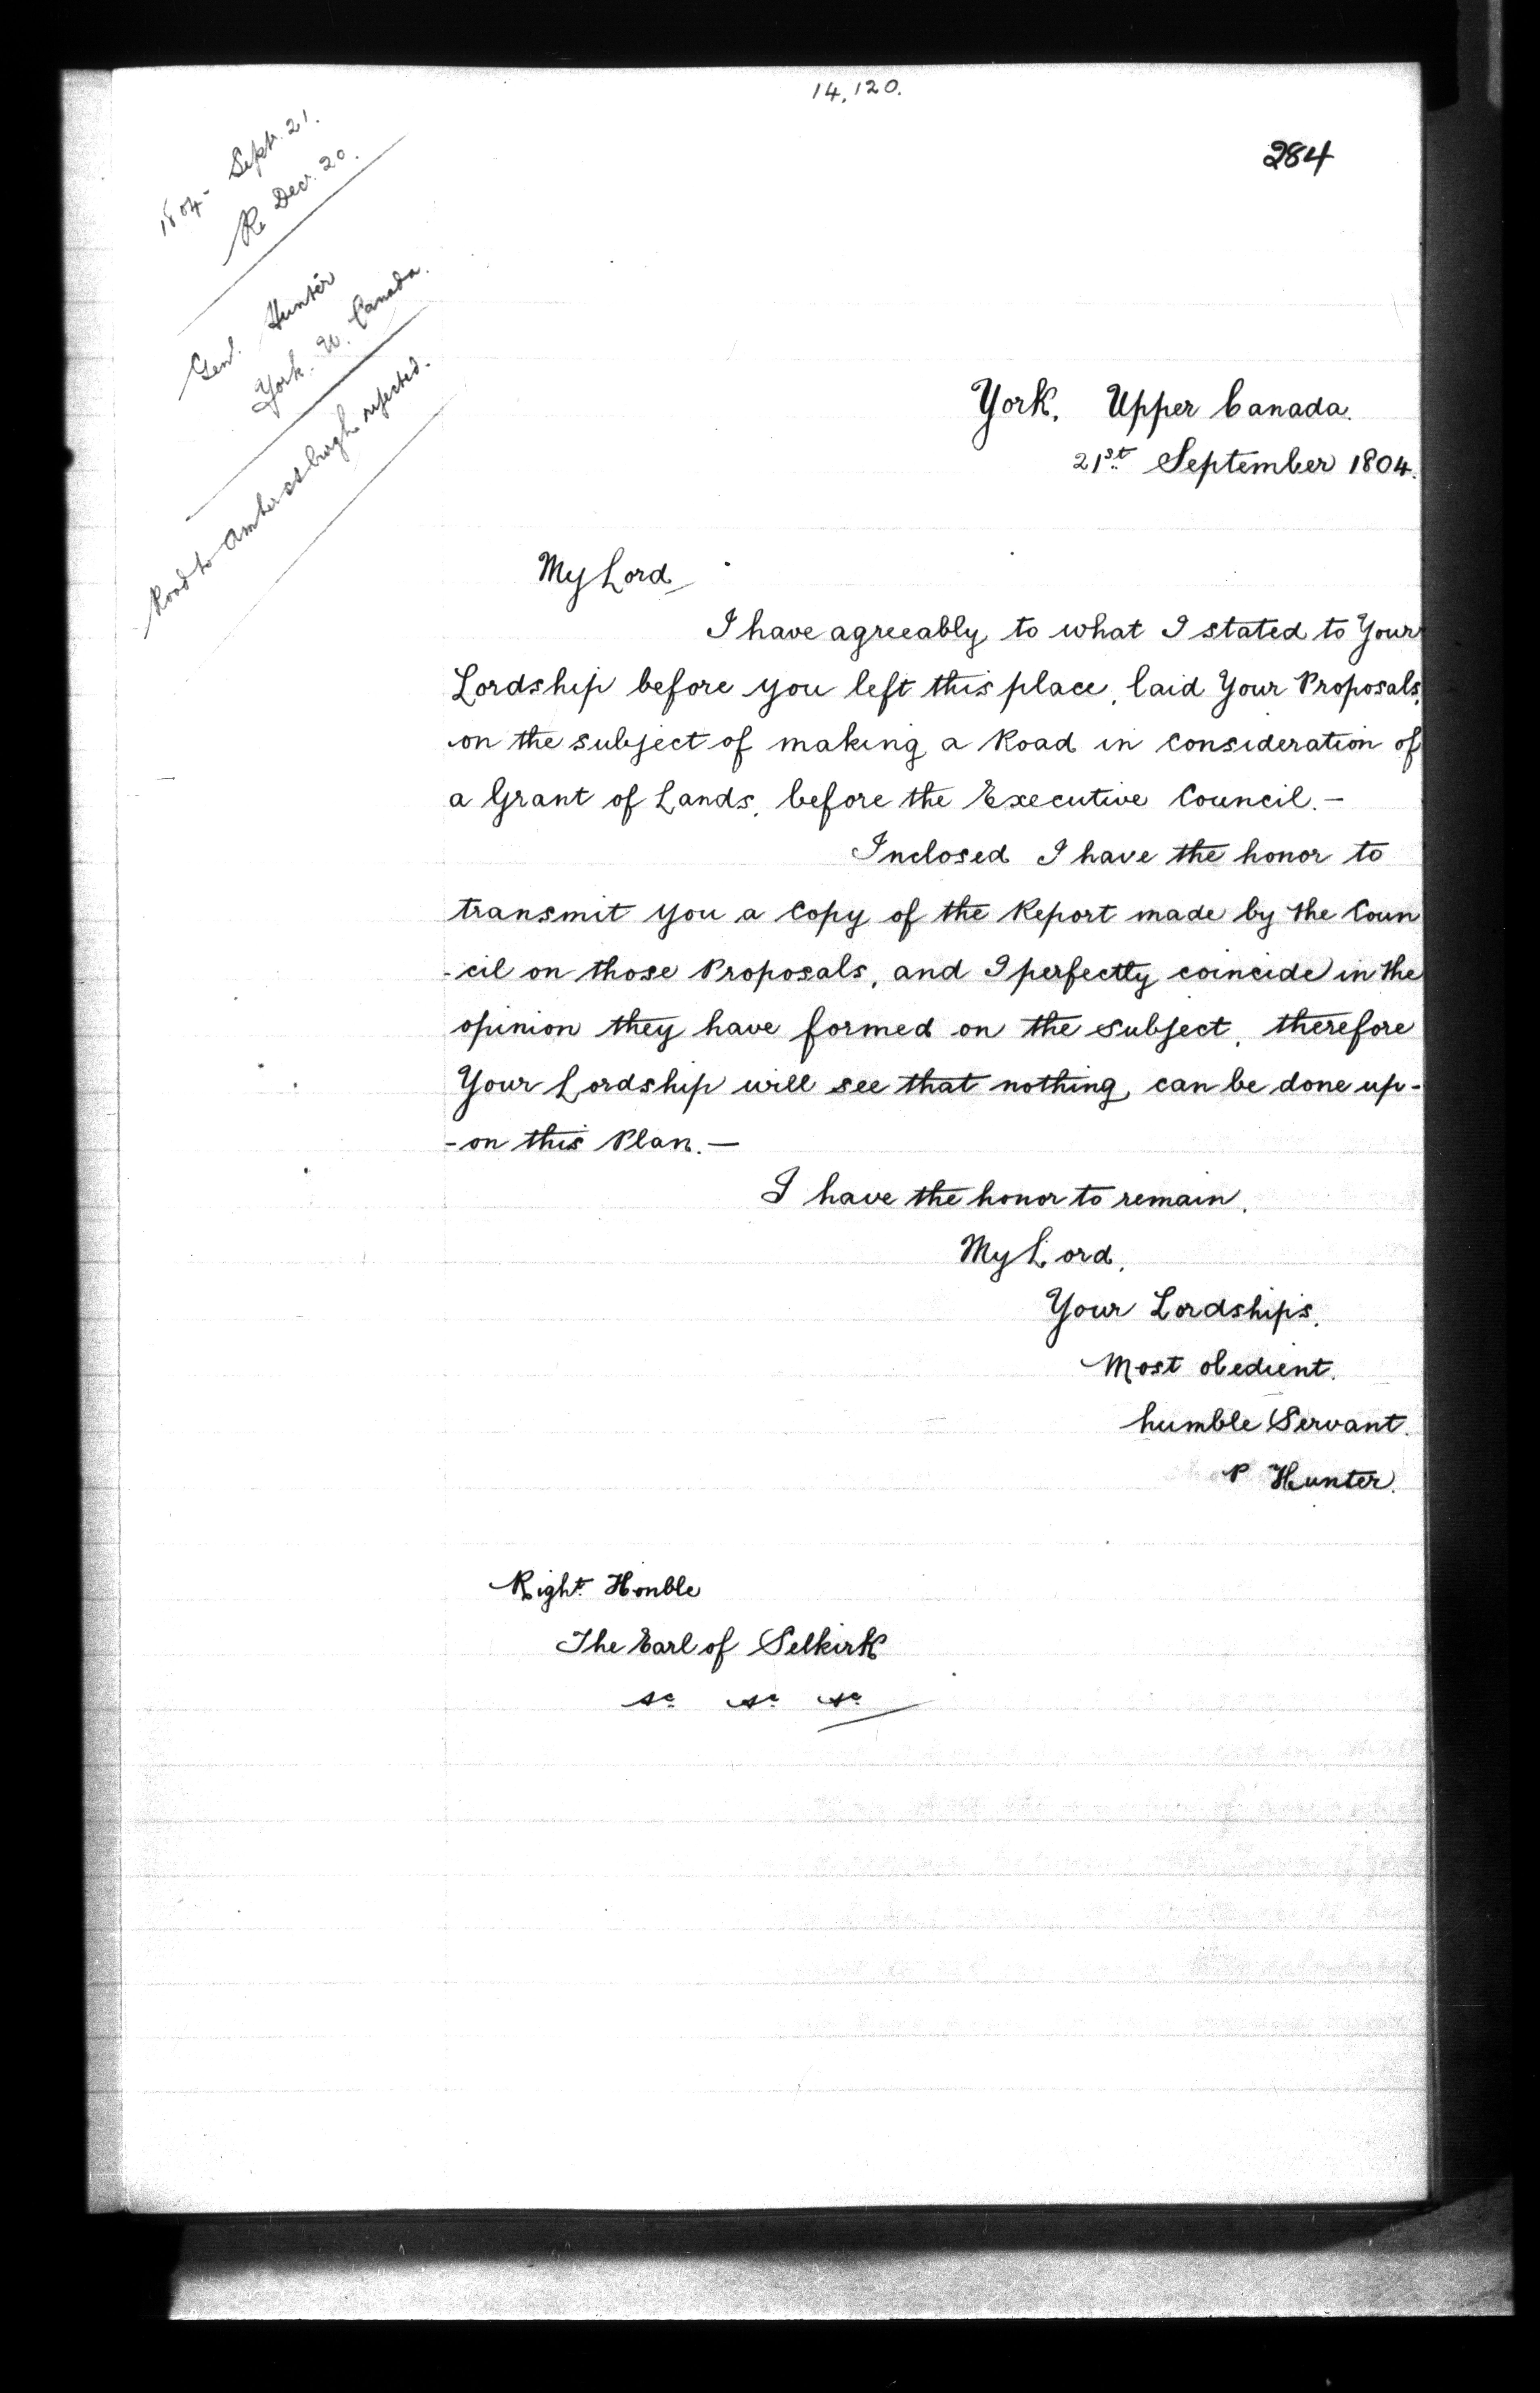 14,120.
284
1804 - Septr. 21.
Re Decr. 20.
Genl. Hunter
York. U. Canada.
Road to Amherstburgh rejected.
York, Upper Canada.
21st September 1804.
My Lord
I have agreeably to what I stated to Your
Lordship before you left this place, laid Your Proposals,
on the subject of making a Road in consideration of
a Grant of Lands, before the Executive Council. -
Inclosed I have the honor to
transmit you a Copy of the Report made by the Coun
-cil on those Proposals, and I perfectly coincide in the
opinion they have formed on the subject, therefore
Your Lordship will see that nothing can be done up-
-on this Plan. -
I have the honor to remain,
My Lord,
Your Lordships,
Most obedient,
humble Servant.
P Hunter.
Right Honble
The Earl of Selkirk
&c &c &c